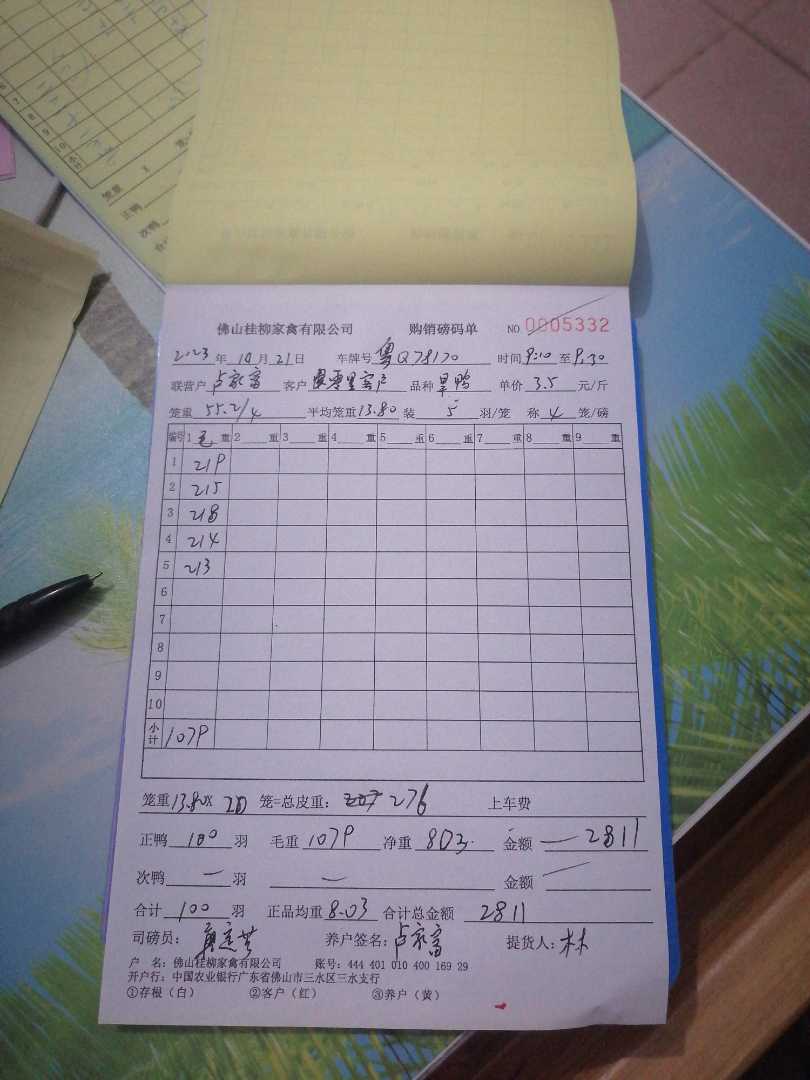 佛山桂柳家禽有限公司 购销磅码单 NO 0005332
2023年10月21日 车牌号粤Q78170 时间9:10至9:30
联营户卢家富 客户零星客户 品种旱鸭 单价3.5元/斤
笼重55.2/4 平均笼重13.80装5羽/笼 称4笼/磅
编号 1毛重 2重 3重 4重 5重 6重 7重 8重 9重
1 219
2 215
3 218
4 214
5 213
6
7
8
9
10
小计 1079
笼重13.80X20笼=总皮重：276 上车费
正鸭100羽 毛重1079 净重803 金额—2811
次鸭—羽 — 金额—
合计100羽 正品均重8.03 合计总金额2811
司磅员： 养户签名：卢家富 提货人：林
户 名：佛山桂柳家禽有限公司 账号：444 401 010 400 169 29
开户行：中国农业银行广东省佛山市三水区三水支行
①存根（白） ②客户（红） ③养户（黄）